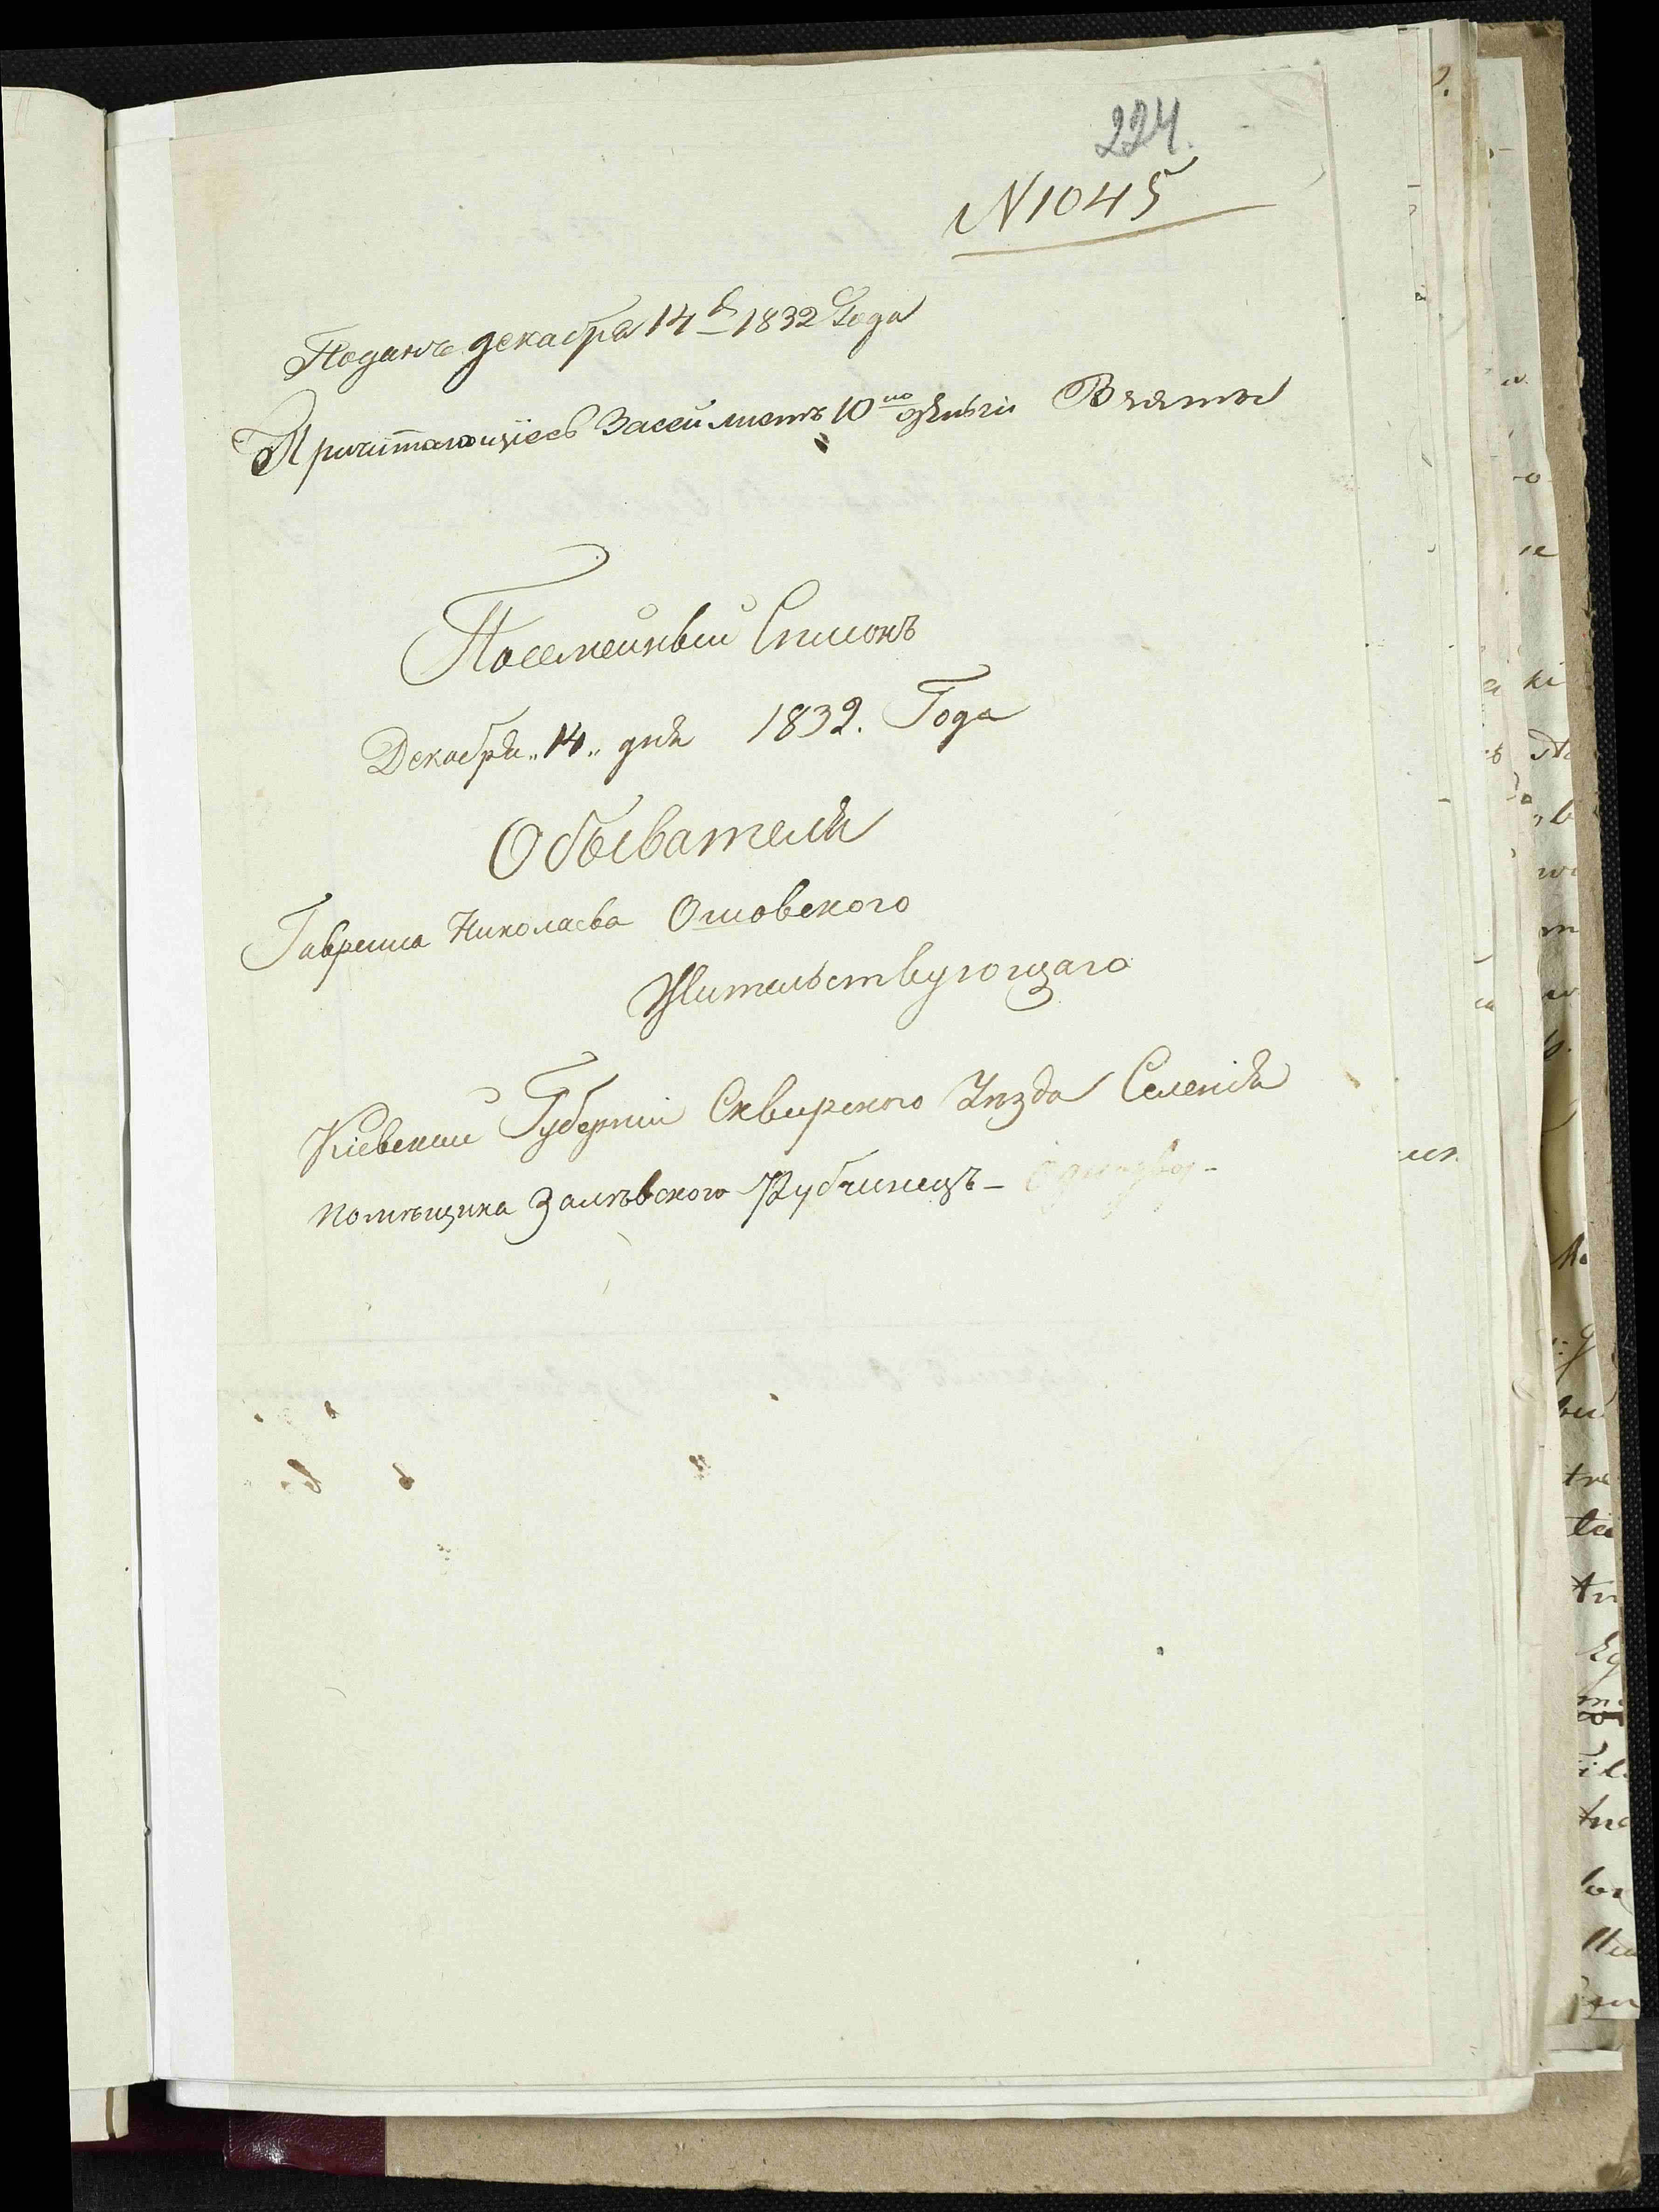 224.
N 1045
Поданъ декабря 14 д 1832 Года
Причитающіесь Засей листъ 10 ио деньги Взяты
Посемейный Списокъ
Декабря „14„ дня 1832. Года
Обывателя
Гаврыила Николаева Ошовского
Жительствующаго
Кіевекии Губернии Сквирского Уезда Селенія
помѣщика Залѣвского Рубчинецъ -